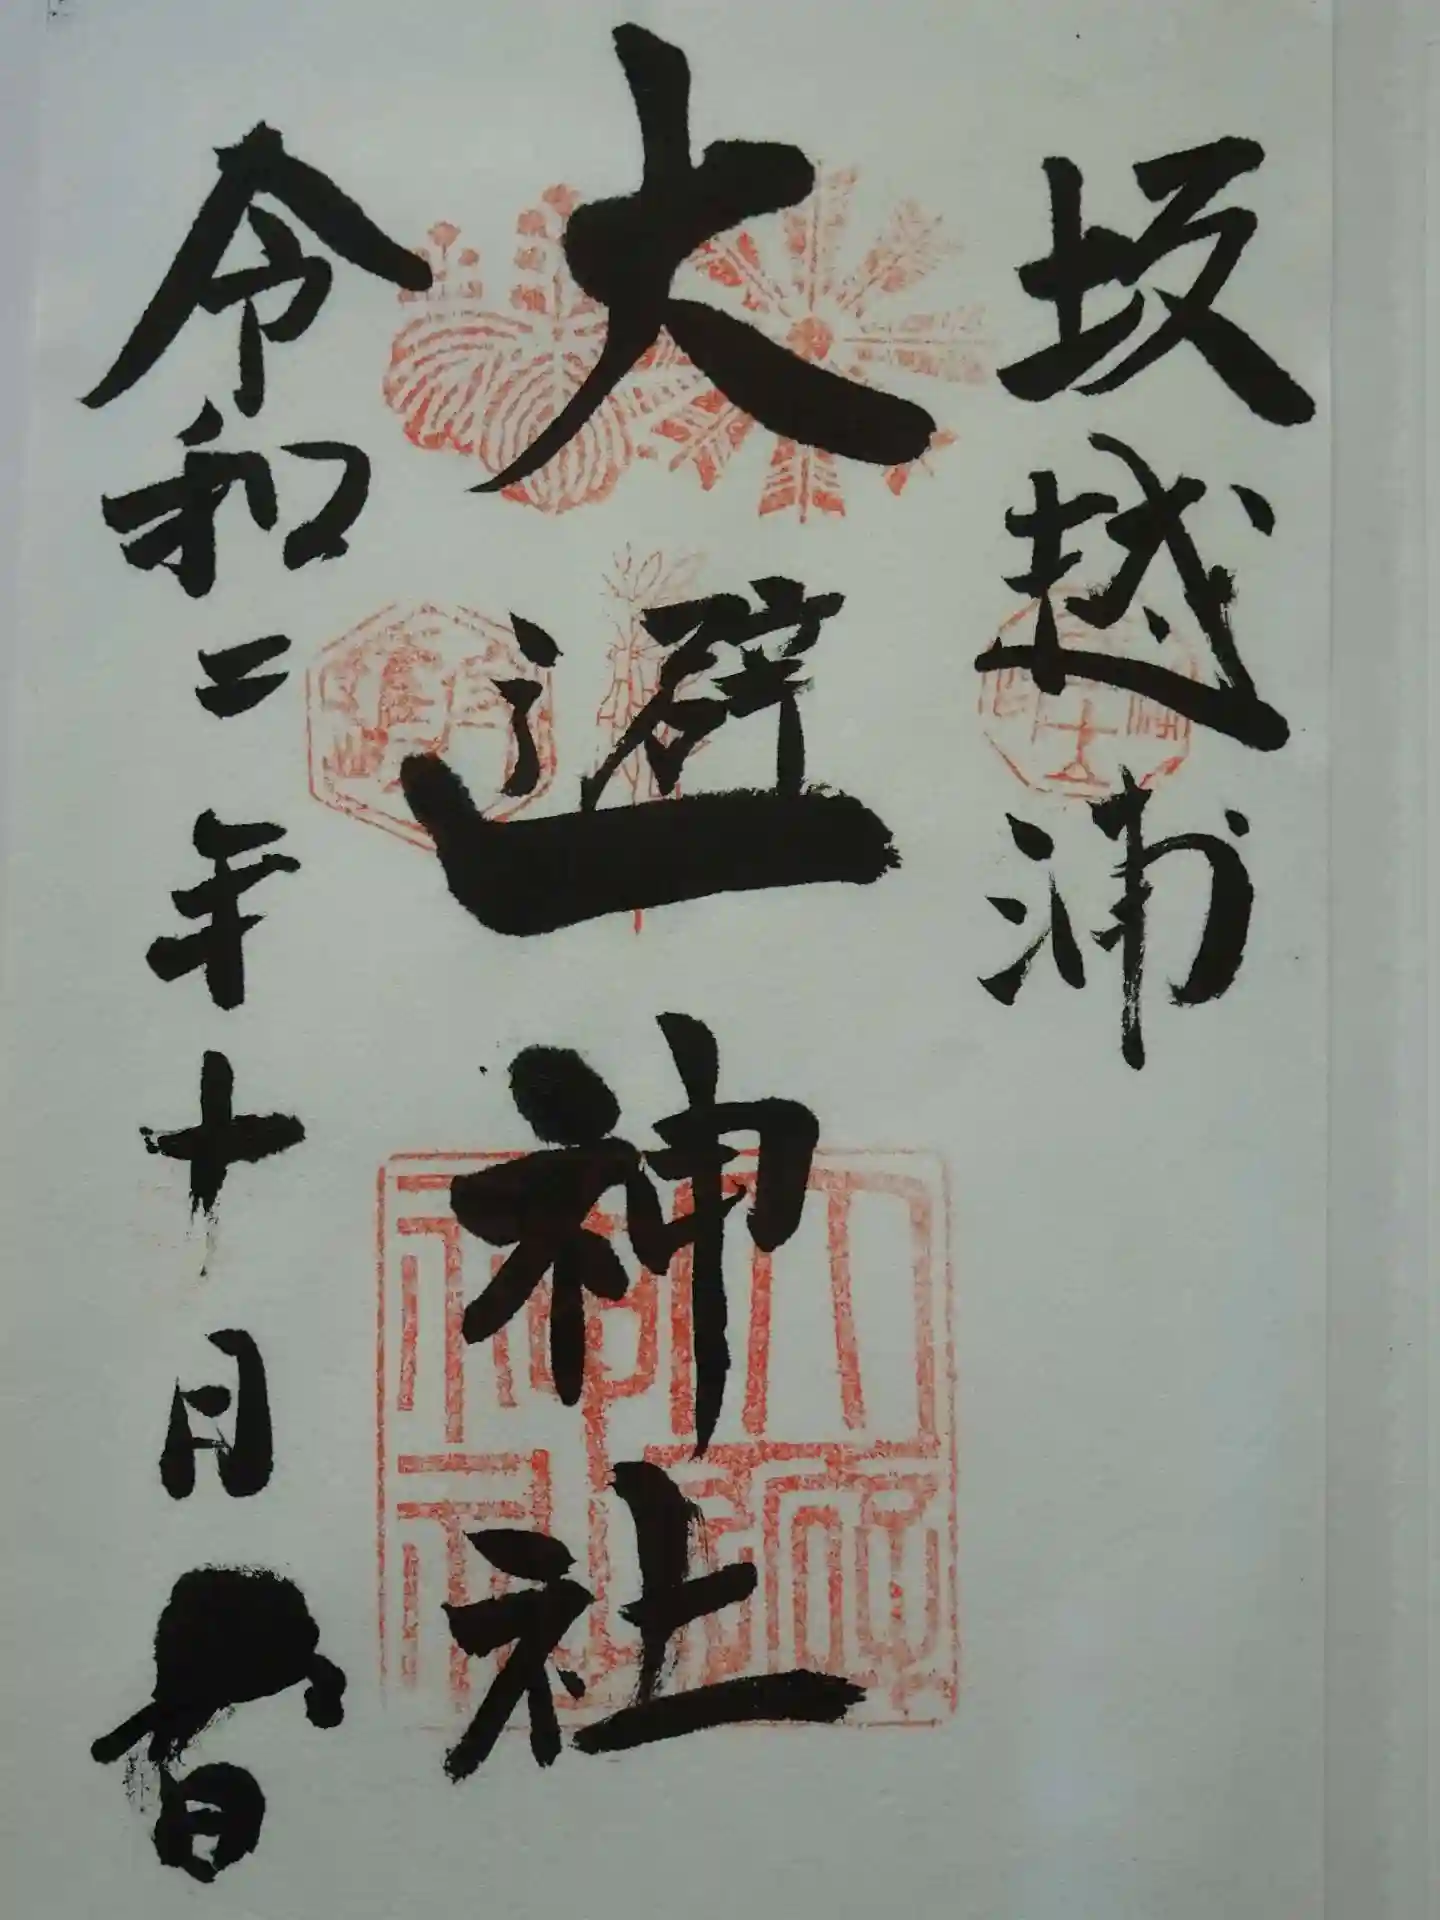 坂越浦
大避神社
令和二年十月 日
大避神社